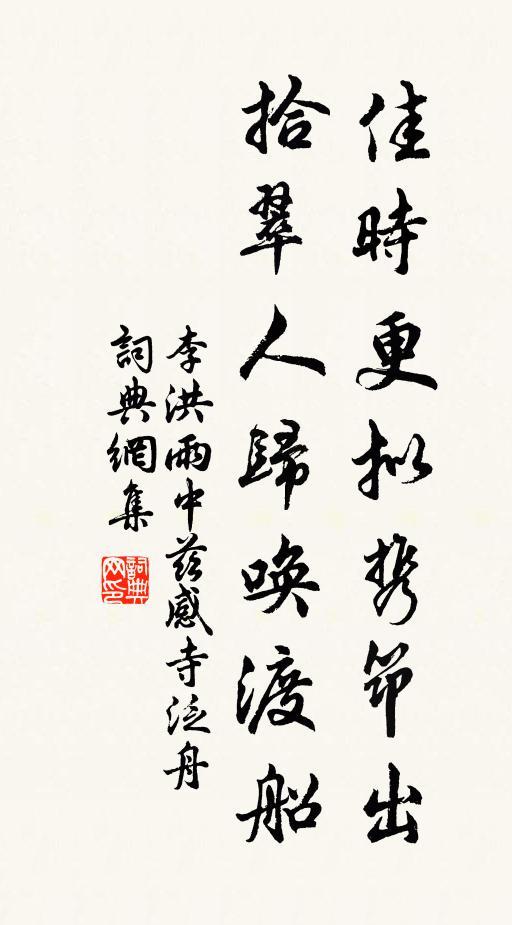 佳時更拟携筇出
拾翠人歸唤渡船
李洪雨中兹感寺泛舟
詞典網集
詞典网印